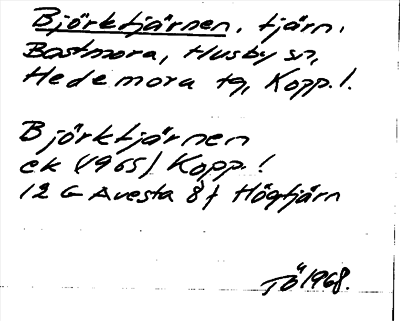 Björktjärnen, tjärn.
Bastmora, Husby sn,
Hedemora tg, Kopp. l.
Björktjärnen
ek (1965) Kopp. l
12 G Avesta 8 f Högtjärn
TÖ 1968.